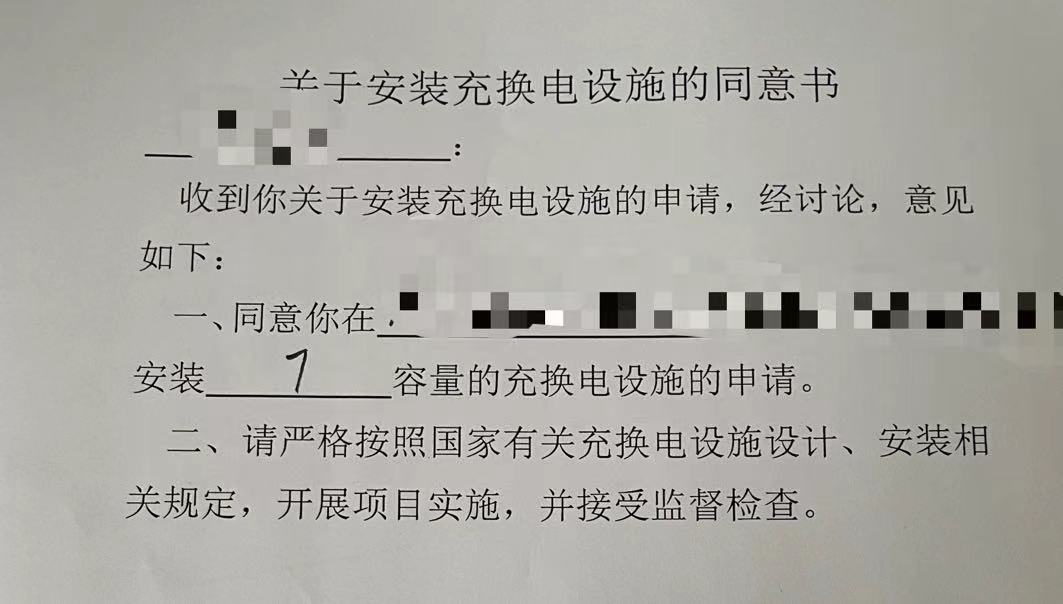 关于安装充换电设施的同意书
：
收到你关于安装充换电设施的申请，经讨论，意见
如下：
一、同意你在
安装7容量的充换电设施的申请。
二、请严格按照国家有关充换电设施设计、安装相
关规定，开展项目实施，并接受监督检查。